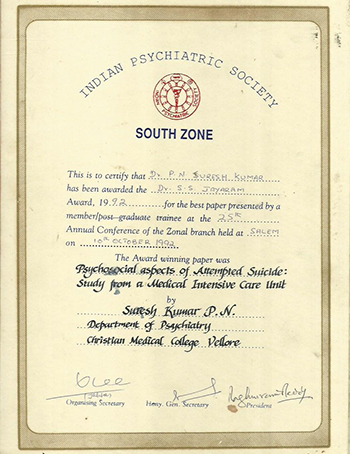 INDIAN PSYCHIATRIC SOCIETY
SOUTH ZONE
This is to certify that Dr. P. N. SURESH KUMAR
has been awarded the Dr. S. S. JAYARAM
Award, 1992 for the best paper presented by a
member/post-graduate trainee at the 25th
Annual Conference of the Zonal branch held at SALEM
on 10th OCTOBER 1992
The Award winning paper was
Psychosocial aspects of Attempted Suicide:
Study from a Medical Intensive Care Unit
by
Suresh Kumar P.N.
Department of Psychiatry
Christian Medical College Vellore
Organising Secretary Hony. Gen. Secretary President